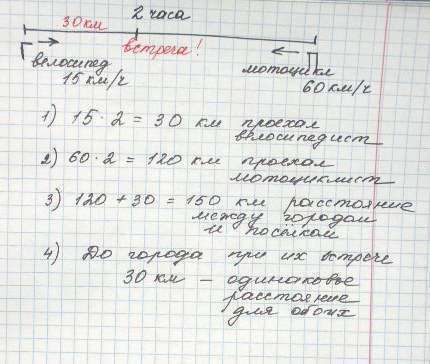 2 часа
30 км
встреча!
Г
П
велосипед
15 км/ч
мотоцикл
60 км/ч
1) 15 · 2 = 30 км проехал
велосипедист
2) 60 · 2 = 120 км проехал
мотоциклист
3) 120 + 30 = 150 км расстояние
между городом
и посёлком
4) До города при их встрече
30 км – одинаковое
расстояние
для обоих